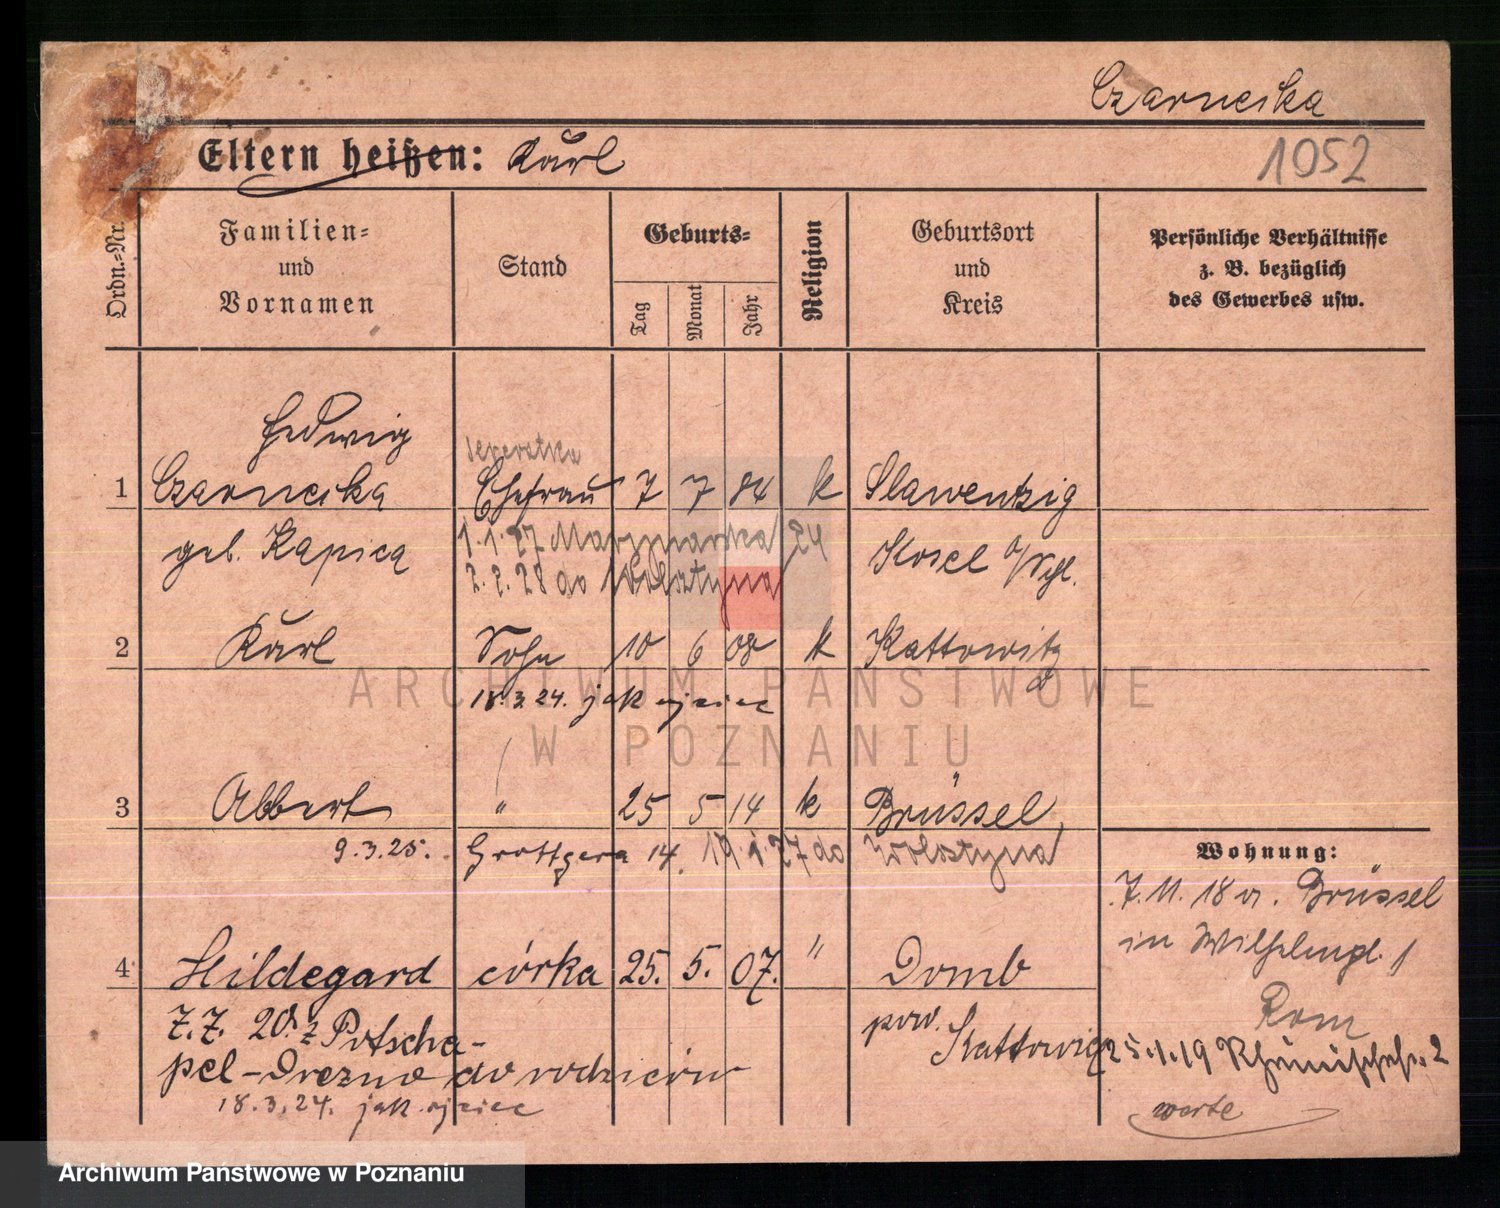 Czarneska
Eltern heißen: Karl
1052
Ordn.-Nr.
Familien-
und
Vornamen
Stand
Geburts-
Tag
Monat
Jahr
Religion
Geburtsort
und
Kreis
Persönliche Verhältnisse
z. B. bezüglich
des Gewerbes usw.
Hedwig
1 Czarneska Ehefrau 7 7 84 k Slawentzig
geb. Kapica
1.1.27 24
Kosel
2.2.28 do Wolsztyna
2 Karl Sohn 10 6 08 k Kattowitz
18.3.24. jak ojciec
3 Albert " 25 5 14 k Brüssel
9.3.25. Grottgera 14. 19.1.27 do Wolsztyna
Wohnung:
7.11.18 v. Brüssel
in Wilhelmpl. 1
4 Hildegard córka 25. 5. 07. " Domb
pow. Kattowitz
7.7. 20 z Potscha-
pel-Drezno do rodziców
18.3.24. jak ojciec
25.1.19 2
ARCHIWUM PAŃSTWOWE
W POZNANIU
Archiwum Państwowe w Poznaniu